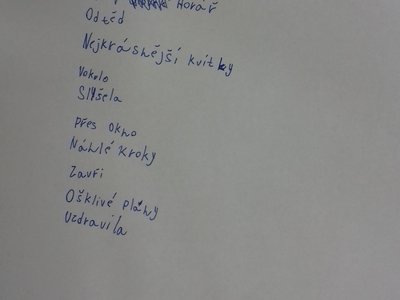 Horář
Odtéd
Nejkrásnější kvítky
Vokolo
Slyšela
přes okno
Náhlé kroky
Zavři
Ošklivé plány
Uzdravila